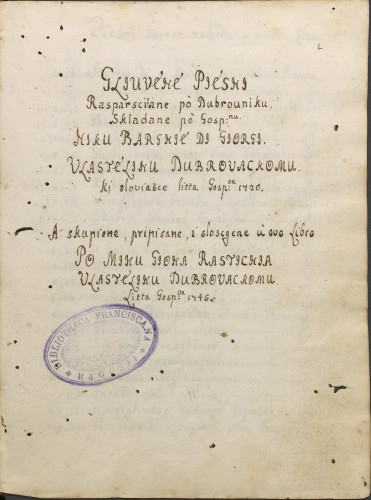 GLIUVÉNÉ PIÉSNI
Rasparscitane pò Dubrouniku,
Skladane pò Gosp:nu
NIKU BARGNIÉ DI GIORGI.
VLASTÉLINU DUBROVACKOMU.
ki sloviasce litta Gosp:a 1720.
A skupione, pripisane, i sloscgene ù ovo libro
PO MIHU GIONA RASTICHIA
VLASTÉLINU DUBROVACKOMU.
Litta Gosp:a 1745.
BIBLIOTHECA FRANCISCANA
* RAGUSII *